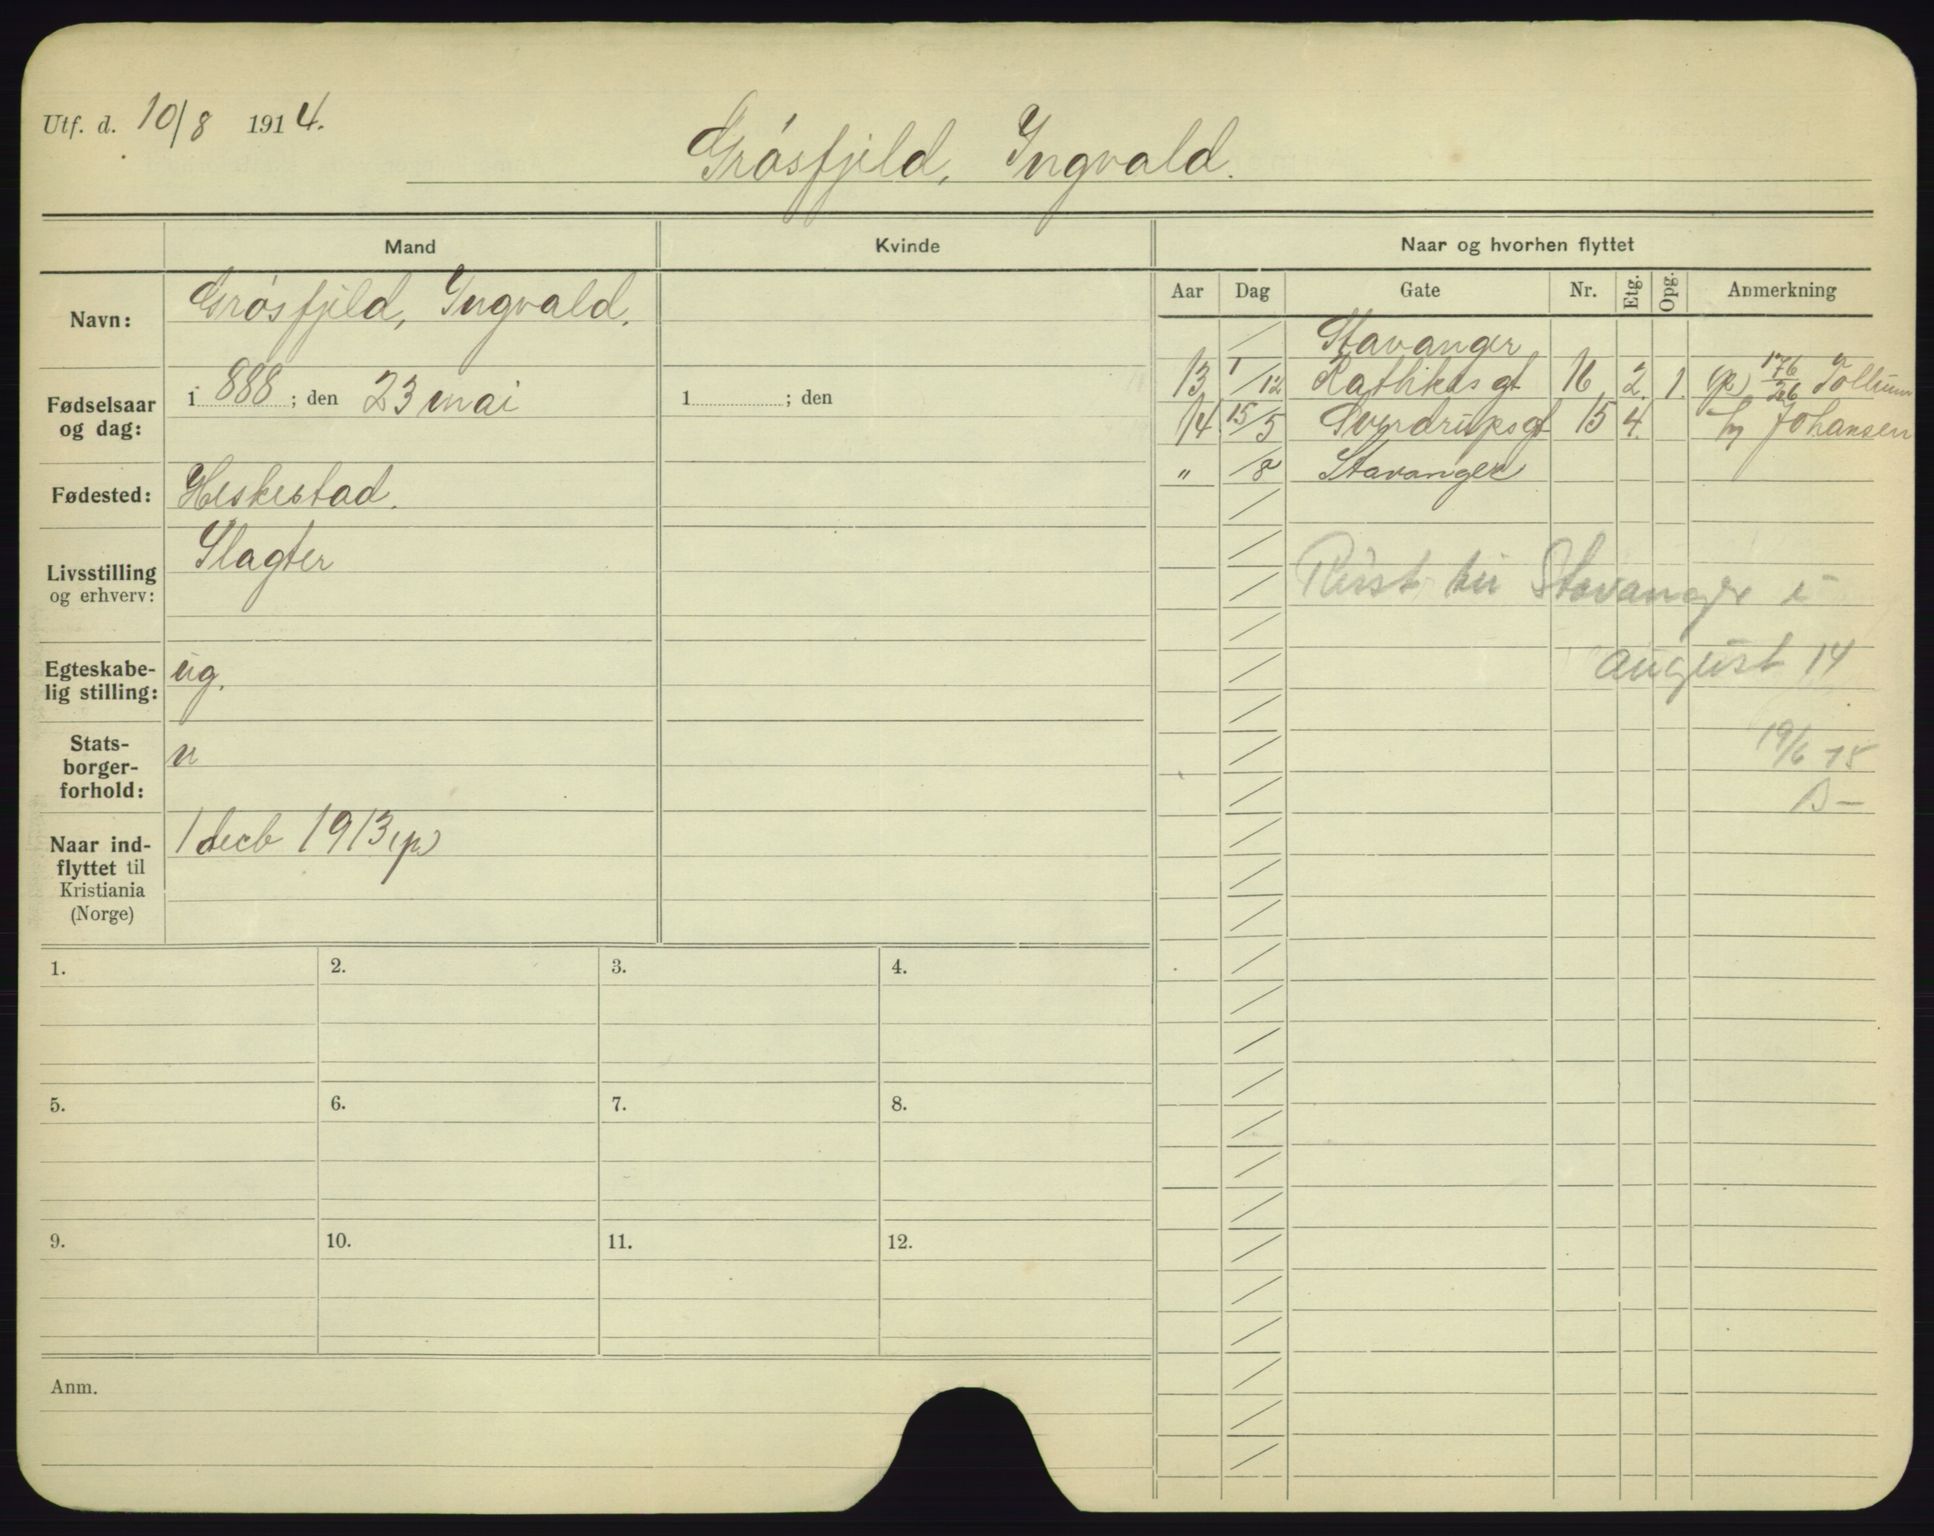 Utf. d. 10/8 1914.
Grósfjeld, Ingvald.
Mand
Kvinde
Naar og hvorhen flyttet
Navn: Grósfjeld, Ingvald.
Fødselsaar og dag: 1888; den 23 mai
1 ; den
Fødested: Heskestad.
Livsstilling og erhverv: Slagter
Egteskabe-
lig stilling: ug.
Stats-
borger-
forhold: n
Naar ind-
flyttet til
Kristiania
(Norge) 1 decb 1913 (p)
Aar Dag Gate Nr. Etg. Opg. Anmerkning
/ Stavanger
13 1/12 Rathkes gt 16 2. 1. (p) 176/26
14 15/5 Sverdrups gt 15 4. hj Johansen
" /8 Stavanger
Reist til Stavanger i
august 14
19/6 15
1. 2. 3. 4.
5. 6. 7. 8.
9. 10. 11. 12.
Anm.